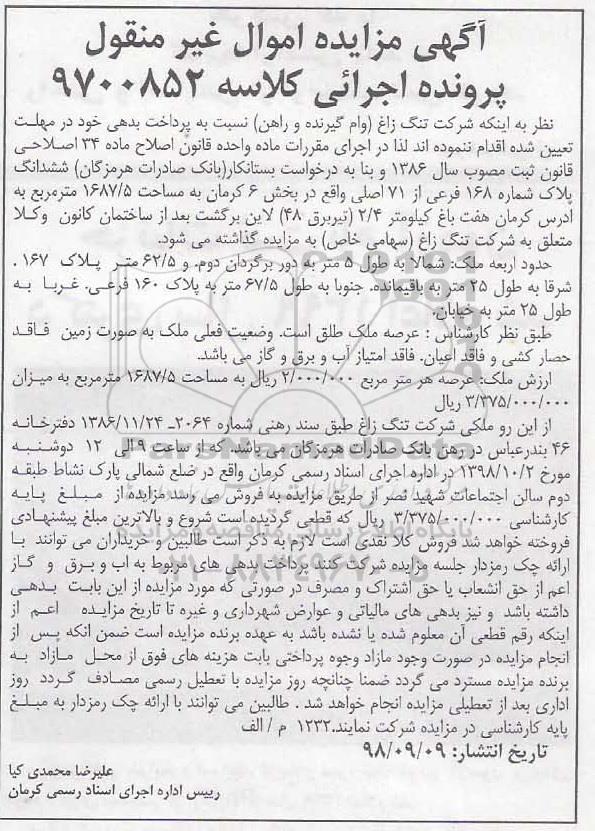 آگهی مزایده اموال غیر منقول
پرونده اجرائی کلاسه ۹۷۰۰۸۵۲
نظر به اینکه شرکت تنگ زاغ (وام گیرنده و راهن) نسبت به پرداخت بدهی خود در مهلت
تعیین شده اقدام ننموده اند لذا در اجرای مقررات ماده واحده قانون اصلاح ماده ۳۴ اصلاحی
قانون ثبت مصوب سال ۱۳۸۶ و بنا به درخواست بستانکار(بانک صادرات هرمزگان) ششدانگ
پلاک شماره ۱۶۸ فرعی از ۷۱ اصلی واقع در بخش ۶ کرمان به مساحت ۱۶۸۷/۵ مترمربع به
ادرس کرمان هفت باغ کیلومتر ۲/۴ (تیربرق ۴۸) لاین برگشت بعد از ساختمان کانون وکلا
متعلق به شرکت تنگ زاغ (سهامی خاص) به مزایده گذاشته می شود.
حدود اربعه ملک: شمالا به طول ۵ متر به دور برگردان دوم. و ۶۲/۵ متر پلاک ۱۶۷ .
شرقا به طول ۲۵ متر به باقیمانده. جنوبا به طول ۶۷/۵ متر به پلاک ۱۶۰ فرعی. غربا به
طول ۲۵ متر به خیابان.
طبق نظر کارشناس : عرصه ملک طلق است. وضعیت فعلی ملک به صورت زمین فاقد
حصار کشی و فاقد اعیان. فاقد امتیاز آب و برق و گاز می باشد.
ارزش ملک: عرصه هر متر مربع ۲/۰۰۰/۰۰۰ ریال به مساحت ۱۶۸۷/۵ مترمربع به میزان
۳/۳۷۵/۰۰۰/۰۰۰ ریال
از این رو ملکی شرکت تنگ زاغ طبق سند رهنی شماره ۲۰۶۴- ۱۳۸۶/۱۱/۲۴ دفترخانه
۴۶ بندرعباس در رهن بانک صادرات هرمزگان می باشد. که از ساعت ۹ الی ۱۲ دوشنبه
مورخ ۱۳۹۸/۱۰/۲ در اداره اجرای اسناد رسمی کرمان واقع در ضلع شمالی پارک نشاط طبقه
دوم سالن اجتماعات شهید نصر از طریق مزایده به فروش می رسد مزایده از مبلغ پایه
کارشناسی ۳/۳۷۵/۰۰۰/۰۰۰ ریال که قطعی گردیده است شروع و بالاترین مبلغ پیشنهادی
فروخته خواهد شد فروش کلا نقدی است لازم به ذکر است طالبین و خریداران می توانند با
ارائه چک رمزدار جلسه مزایده شرکت کنند پرداخت بدهی های مربوط به اب و برق و گاز
اعم از حق انشعاب یا حق اشتراک و مصرف در صورتی که مورد مزایده از این بابت بدهی
داشته باشد و نیز بدهی های مالیاتی و عوارض شهرداری و غیره تا تاریخ مزایده اعم از
اینکه رقم قطعی آن معلوم شده یا نشده باشد به عهده برنده مزایده است ضمن انکه پس از
انجام مزایده در صورت وجود مازاد وجوه پرداختی بابت هزینه های فوق از محل مازاد به
برنده مزایده مسترد می گردد ضمنا چنانچه روز مزایده با تعطیل رسمی مصادف گردد روز
اداری بعد از تعطیلی مزایده انجام خواهد شد . طالبین می توانند با ارائه چک رمزدار به مبلغ
پایه کارشناسی در مزایده شرکت نمایند.۱۲۳۲ م / الف
تاریخ انتشار: ۹۸/۰۹/۰۹
علیرضا محمدی کیا
رییس اداره اجرای اسناد رسمی کرمان